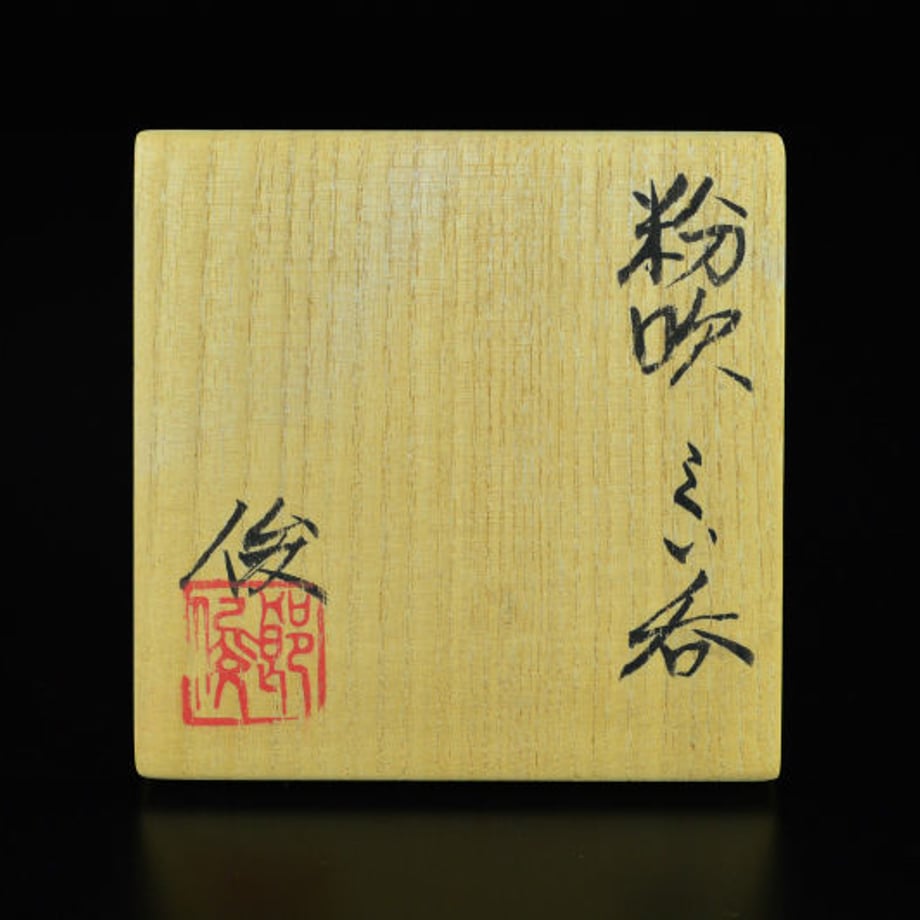 粉吹 ぐい呑
俊